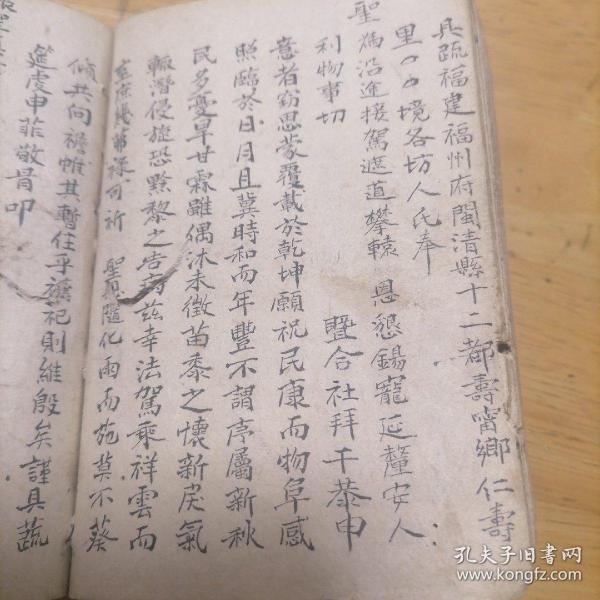 具疏福建福州府閩清縣十二都壽甯鄉仁壽
里々々境各坊人氏奉
聖為沿途接駕遮道攀轅恩懇錫寵延釐安人
利物事切 暨合社拜干恭申
意者窃思蒙覆載於乾坤願祝民康而物阜感
照臨於日月且冀時和而年豐不謂序屬新秋
民多憂旱甘霖雖偶沐未徵苗黍之懷新戾氣
輒潛侵旋恐黔黎之告茲幸法駕乘祥雲而
可祈 聖隨化雨而施莫不葵
傾共向襜帷其暫住孚禱祀則維殷矣謹具疏
筵虔申菲敬昌叩
孔夫子旧书网
www.kongfz.com